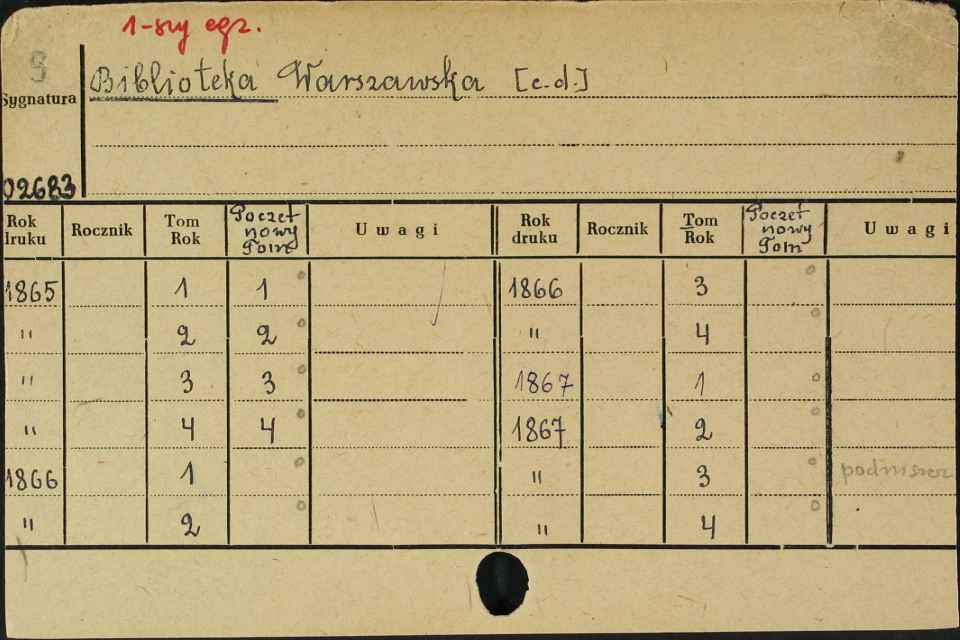 1-szy egz.
S
Biblioteka Warszawska [c.d.]
Sygnatura
02683
Rok druku Rocznik Tom Rok Poczet nowy Tom Uwagi Rok druku Rocznik Tom Rok Poczet nowy Tom Uwagi
1865 1 1 1866 3
" 2 2 " 4
" 3 3 1867 1
" 4 4 1867 2
1866 1 " 3
" 2 " 4